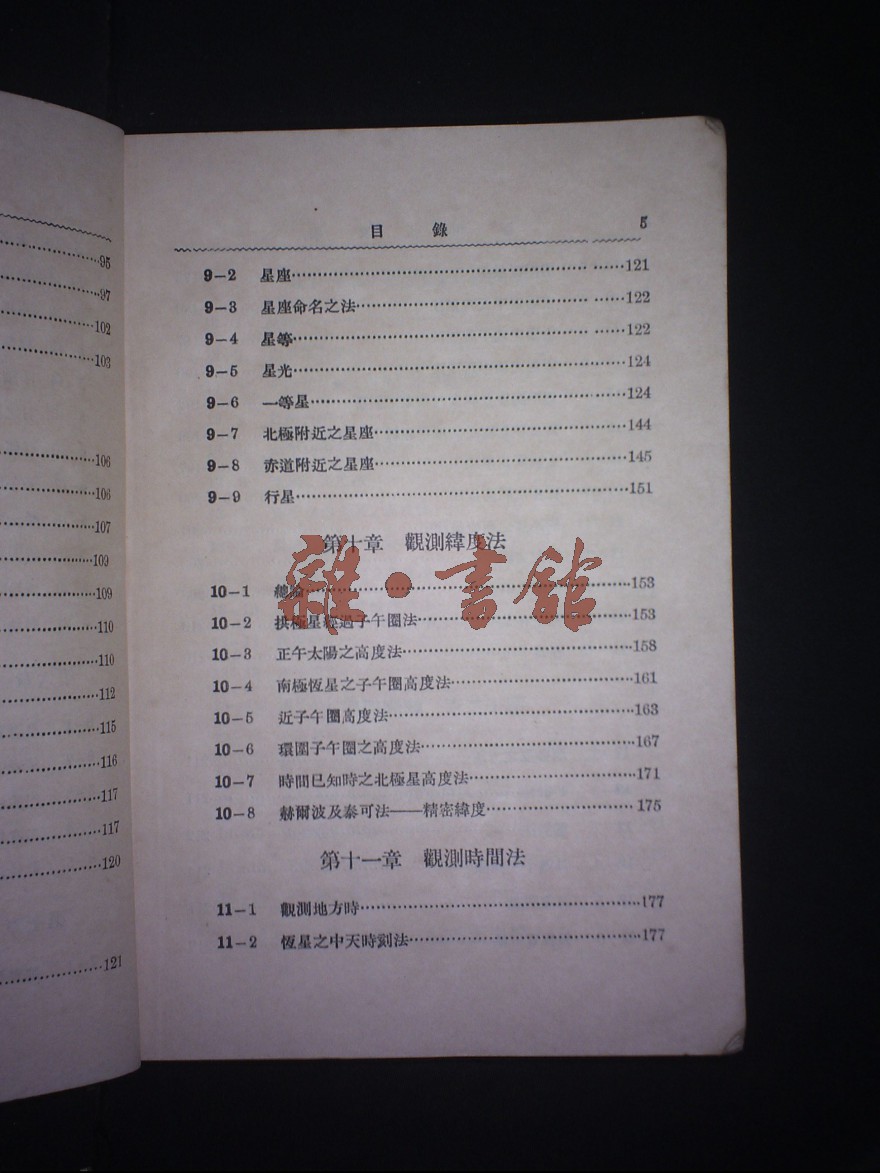 95
97
102
103
106
106
107
109
109
110
110
112
115
116
117
117
120
121
目 錄 5
9—2 星座 121
9—3 星座命名之法 122
9—4 星等 122
9—5 星光 124
9—6 一等星 124
9—7 北極附近之星座 144
9—8 赤道附近之星座 145
9—9 行星 151
第十章 觀測緯度法
10—1 總論 153
10—2 拱極星經過子午圈法 153
10—3 正午太陽之高度法 158
10—4 南極恆星之子午圈高度法 161
10—5 近子午圈高度法 163
10—6 環圍子午圈之高度法 167
10—7 時間已知時之北極星高度法 171
10—8 赫爾波及泰可法——精密緯度 175
第十一章 觀測時間法
11—1 觀測地方時 177
11—2 恆星之中天時刻法 177
雜·書館